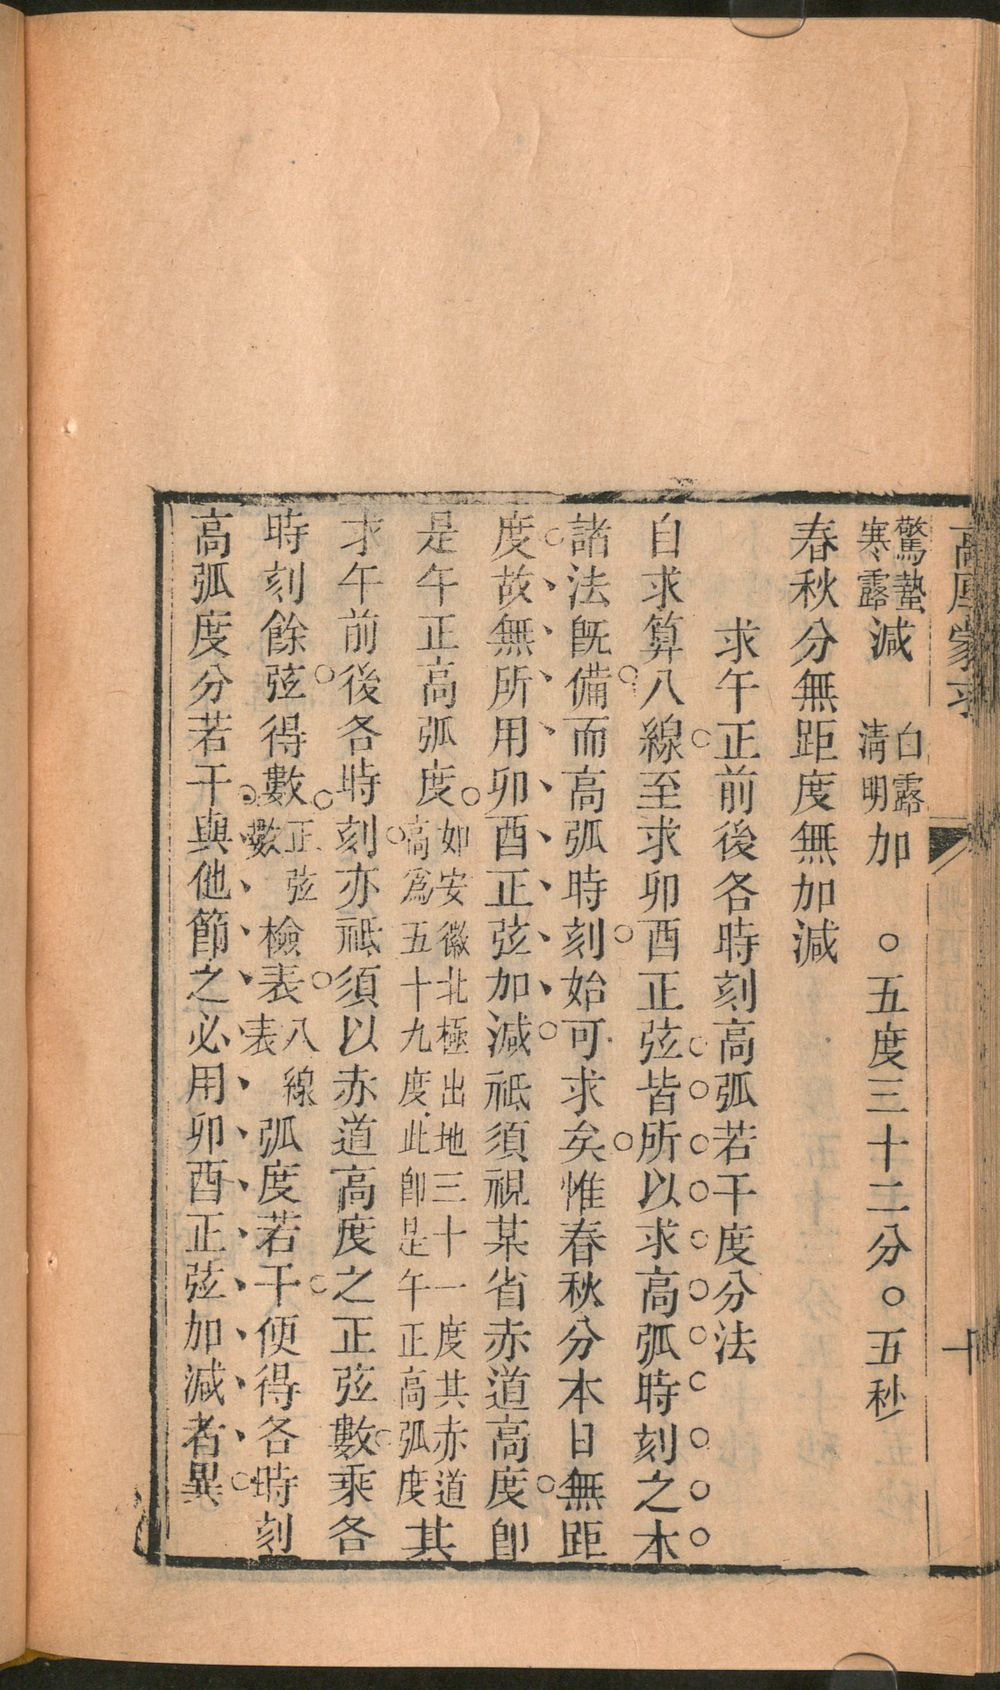 驚蟄寒露減 白露清明加 ○五度三十二分○五秒
春秋分無距度無加減
求午正前後各時刻高弧若干度分法
自求算八線至求卯酉正弦皆所以求高弧時刻之本
諸法旣備而高弧時刻始可求矣惟春秋分本日無距
度故無所用卯酉正弦加減祗須視某省赤道高度卽
是午正高弧度如安徽北極出地三十一度其赤道高爲五十九度此卽是午正高弧度其
求午前後各時刻亦祗須以赤道高度之正弦數乘各
時刻餘弦得數正弦數檢表八線表弧度若干便得各時刻
高弧度分若干與他節之必用卯酉正弦加減者異